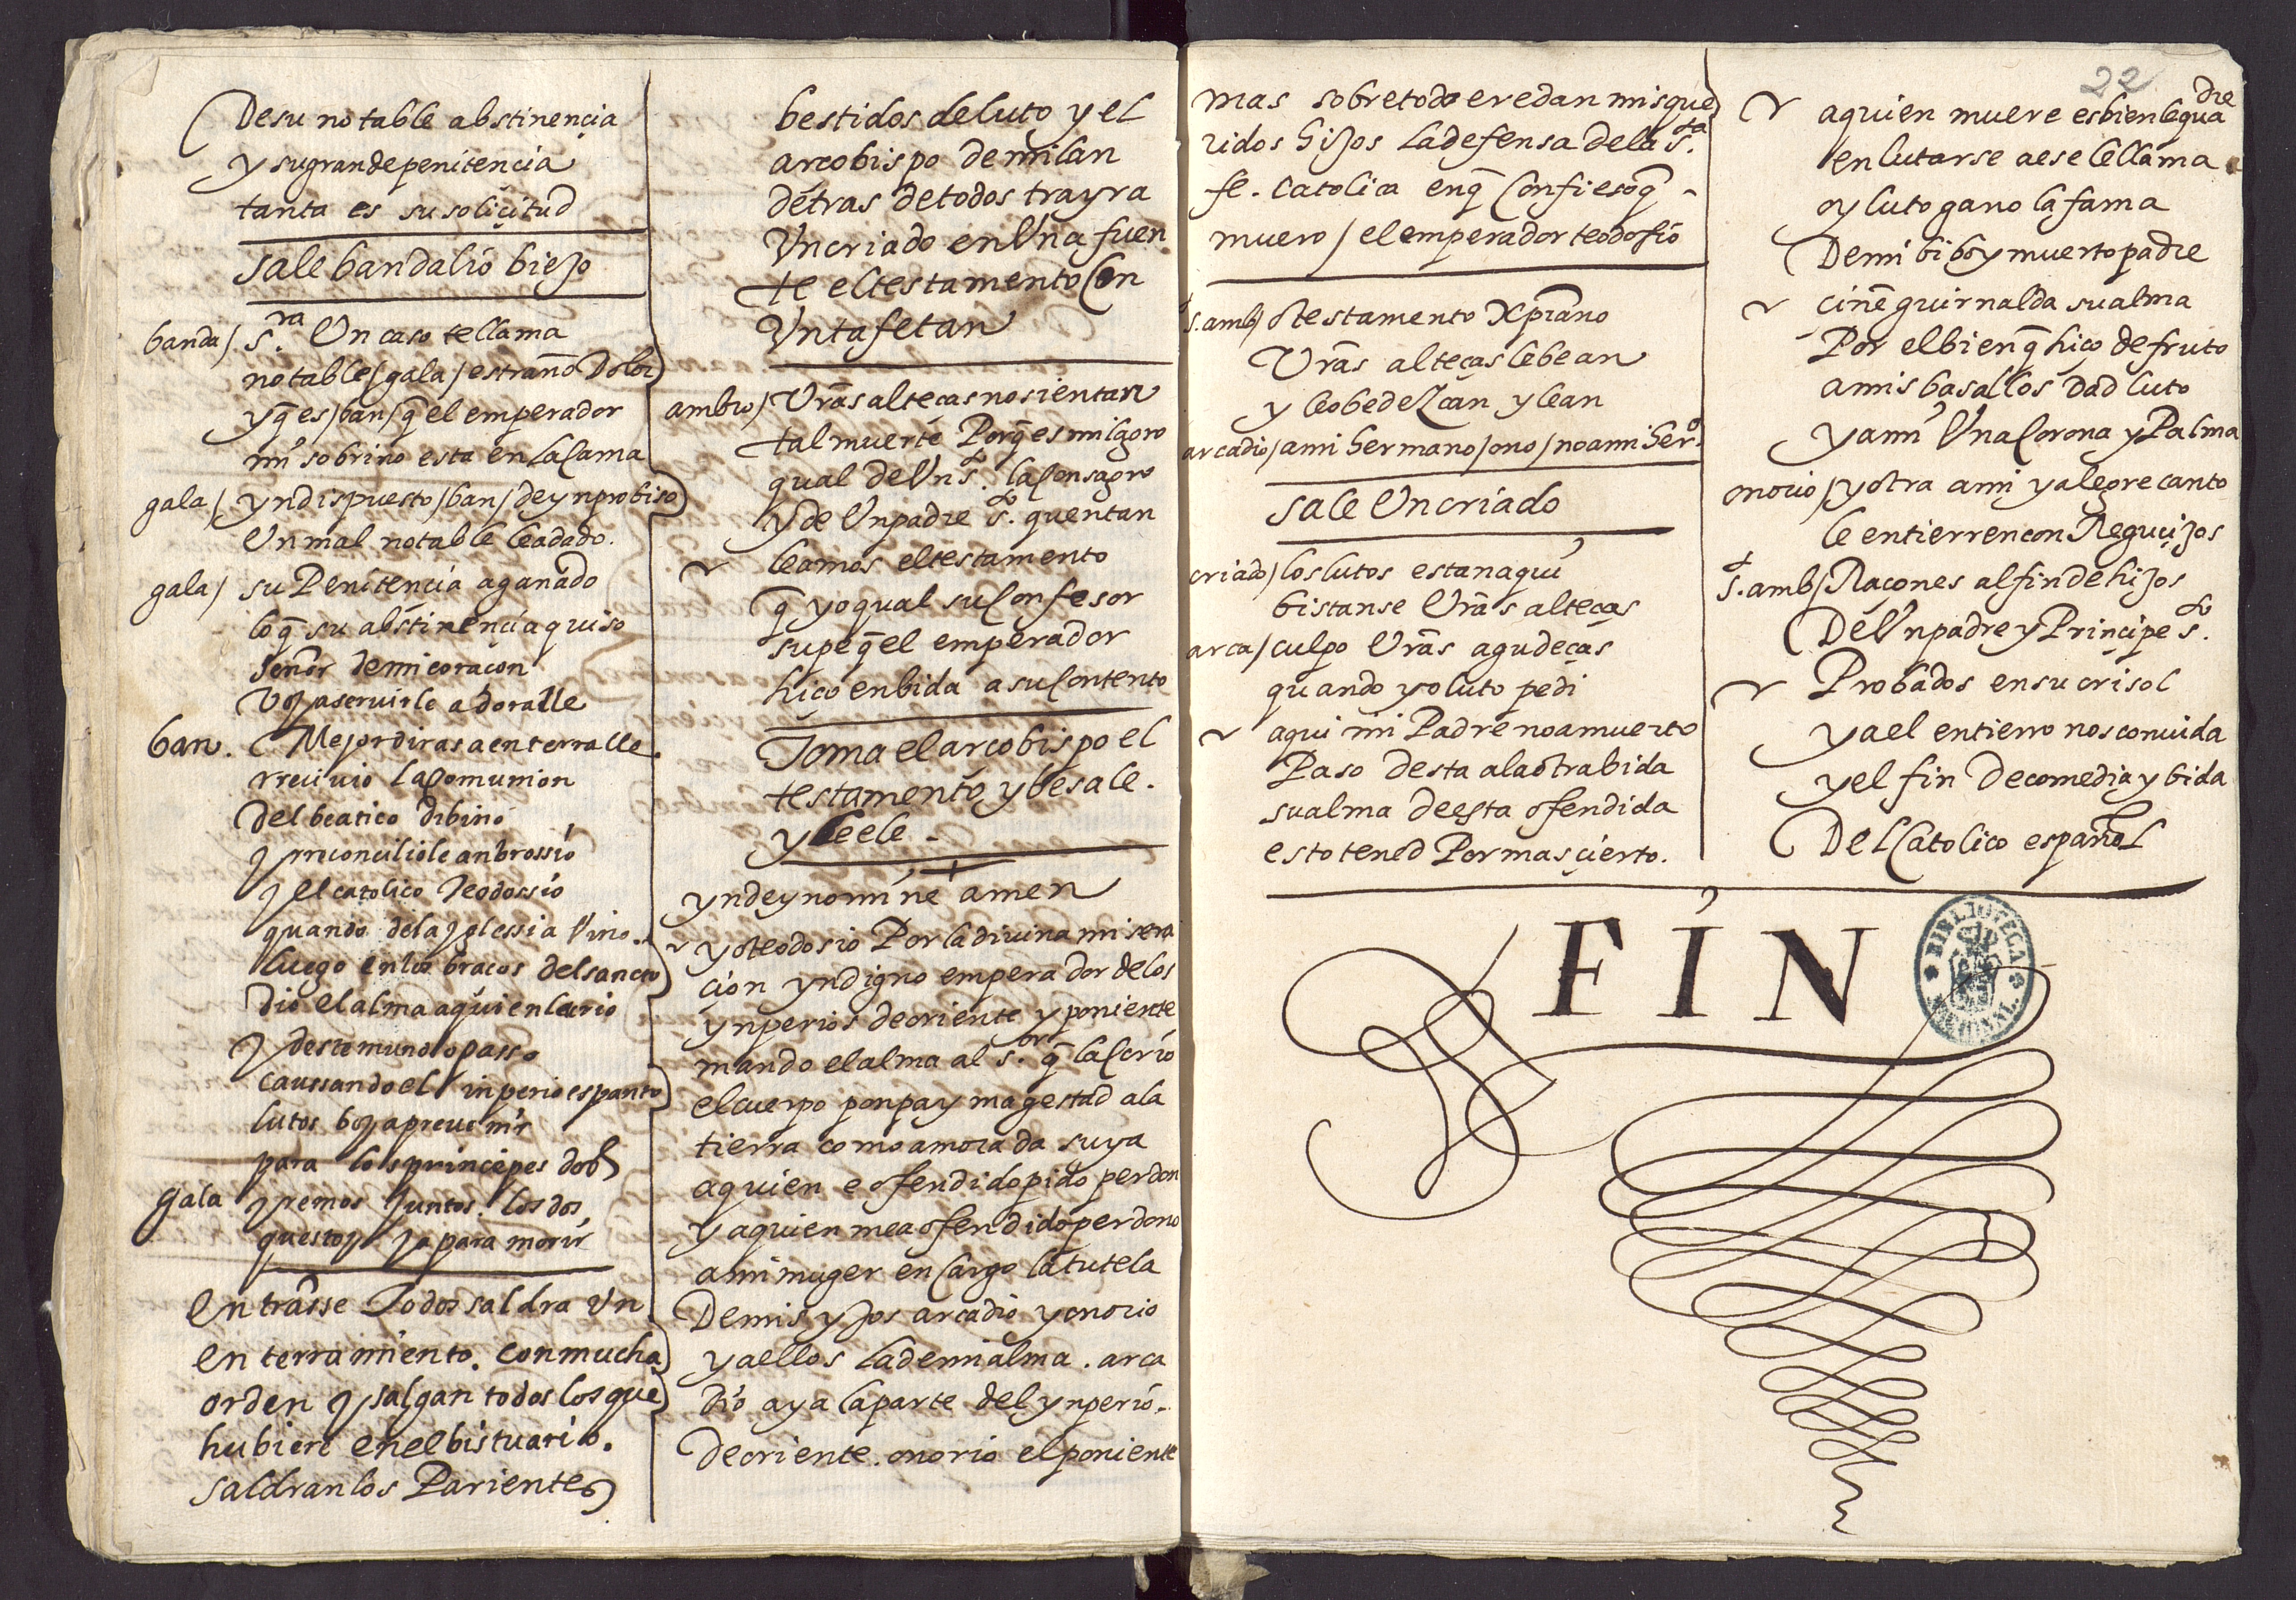 Desu notable abstinençia
y sugrandepenitencia
tanta es su soliçitud
sale bandalio biejo
banda / s.ra Un caso tellama
notable / gala / estraño Dolor
yq̃ es / ban / q̃ el emperador
mi sobrino esta en la Cama
gala / yndispuesto / ban / deynprobiso
Unmal notable leadado.
gala / su Penitencia aganado
loq̃ su abstinençia quiso
señor demicoraçon
Voy aservirle adoralle
ban. Mejor diras aenterralle.
rrecivio la Comunion
del beatico dibino
y rreconciliole anbrossio
y el catolico Teodossio
quando dela yglessia Vino.
luego en los braços del sancto
dio el alma aquien lacrio
y destemundo passo
caussando el inperio espanto
lutos boy aprevenir
para los principes dos
gala yremos juntos los dos
questoy ya para morir
entrãsse Todos saldra Un
enterramiento. con mucha
orden y salgan todos los que
hubiere en el bistuario.
saldran los Parientes
bestidos deluto y el
arcobispo demilan
detras detodos trayra
Uncriado enUna fuen
te eltestamento Con
Untafetan
ambro / Vrãs alteças nosientan
tal muerte Porq̃ es milagro
qual deUn s.to la Consagro
y de Unpadre s.to quentan
leamos eltestamento
q̃ yo qual su Confesor
supe q̃ el emperador
hiço enbida a su Contento
Toma el arcobispo el
testamento y besale.
y leele.
yndeynomine amen
yoteodosio Por ladivina misera
cion yndigno emperador delos
ynperios deoriente y poniente
mando el alma al s.or q̃ la Crio
elcuerpo ponpa y magestad ala
tierra como amorada suya
aquien e ofendido pido perdon
y aquien mea ofendido perdono
amimuger en Cargo latutela
Demis yjos arcadio y onorio
yaellos lademialma. arca
dio aya laparte del ynperio.
deoriente. onorio elponiente
mas sobretodo eredan misque
ridos hijos ladefensa dela s.ta
fe. catolica enq̃ Confiesoq̃
muero / el emperador teodosio
s. amb / O testamento Xpiano
Vrãs alteças lebean
y leobedezcan y lean
arcadio / ami hermano / ono / noami her.o
sale Uncriado
criado / los lutos estan aqui
bistanse Vrãs alteças
arca / culpo Vrãs agudeças
quando yo luto pedi
aqui mi Padre noamuerto
Paso desta alaotrabida
sualma deesta ofendida
esto tened Por masçierto.
22
aquien muere esbien lequadre
enlutarse aese lellama
oy luto gano la fama
Demi bibo y muerto padre
ciñe guirnalda sualma
Por elbien q̃ hiço de fruto
amis basallos dad luto
y ami Una Corona y Palma
onorio / yotra ami y alegre canto
le entierrencon Reguçijos
s. amb / Raçones alfin dehijos
DeUnpadre y Prinçipe s.to
Probados ensu crisol
yael entierro nos convida
yel fin decomedia y bida
Del Catolico español
FIN
BIBLIOTECA NACIONAL